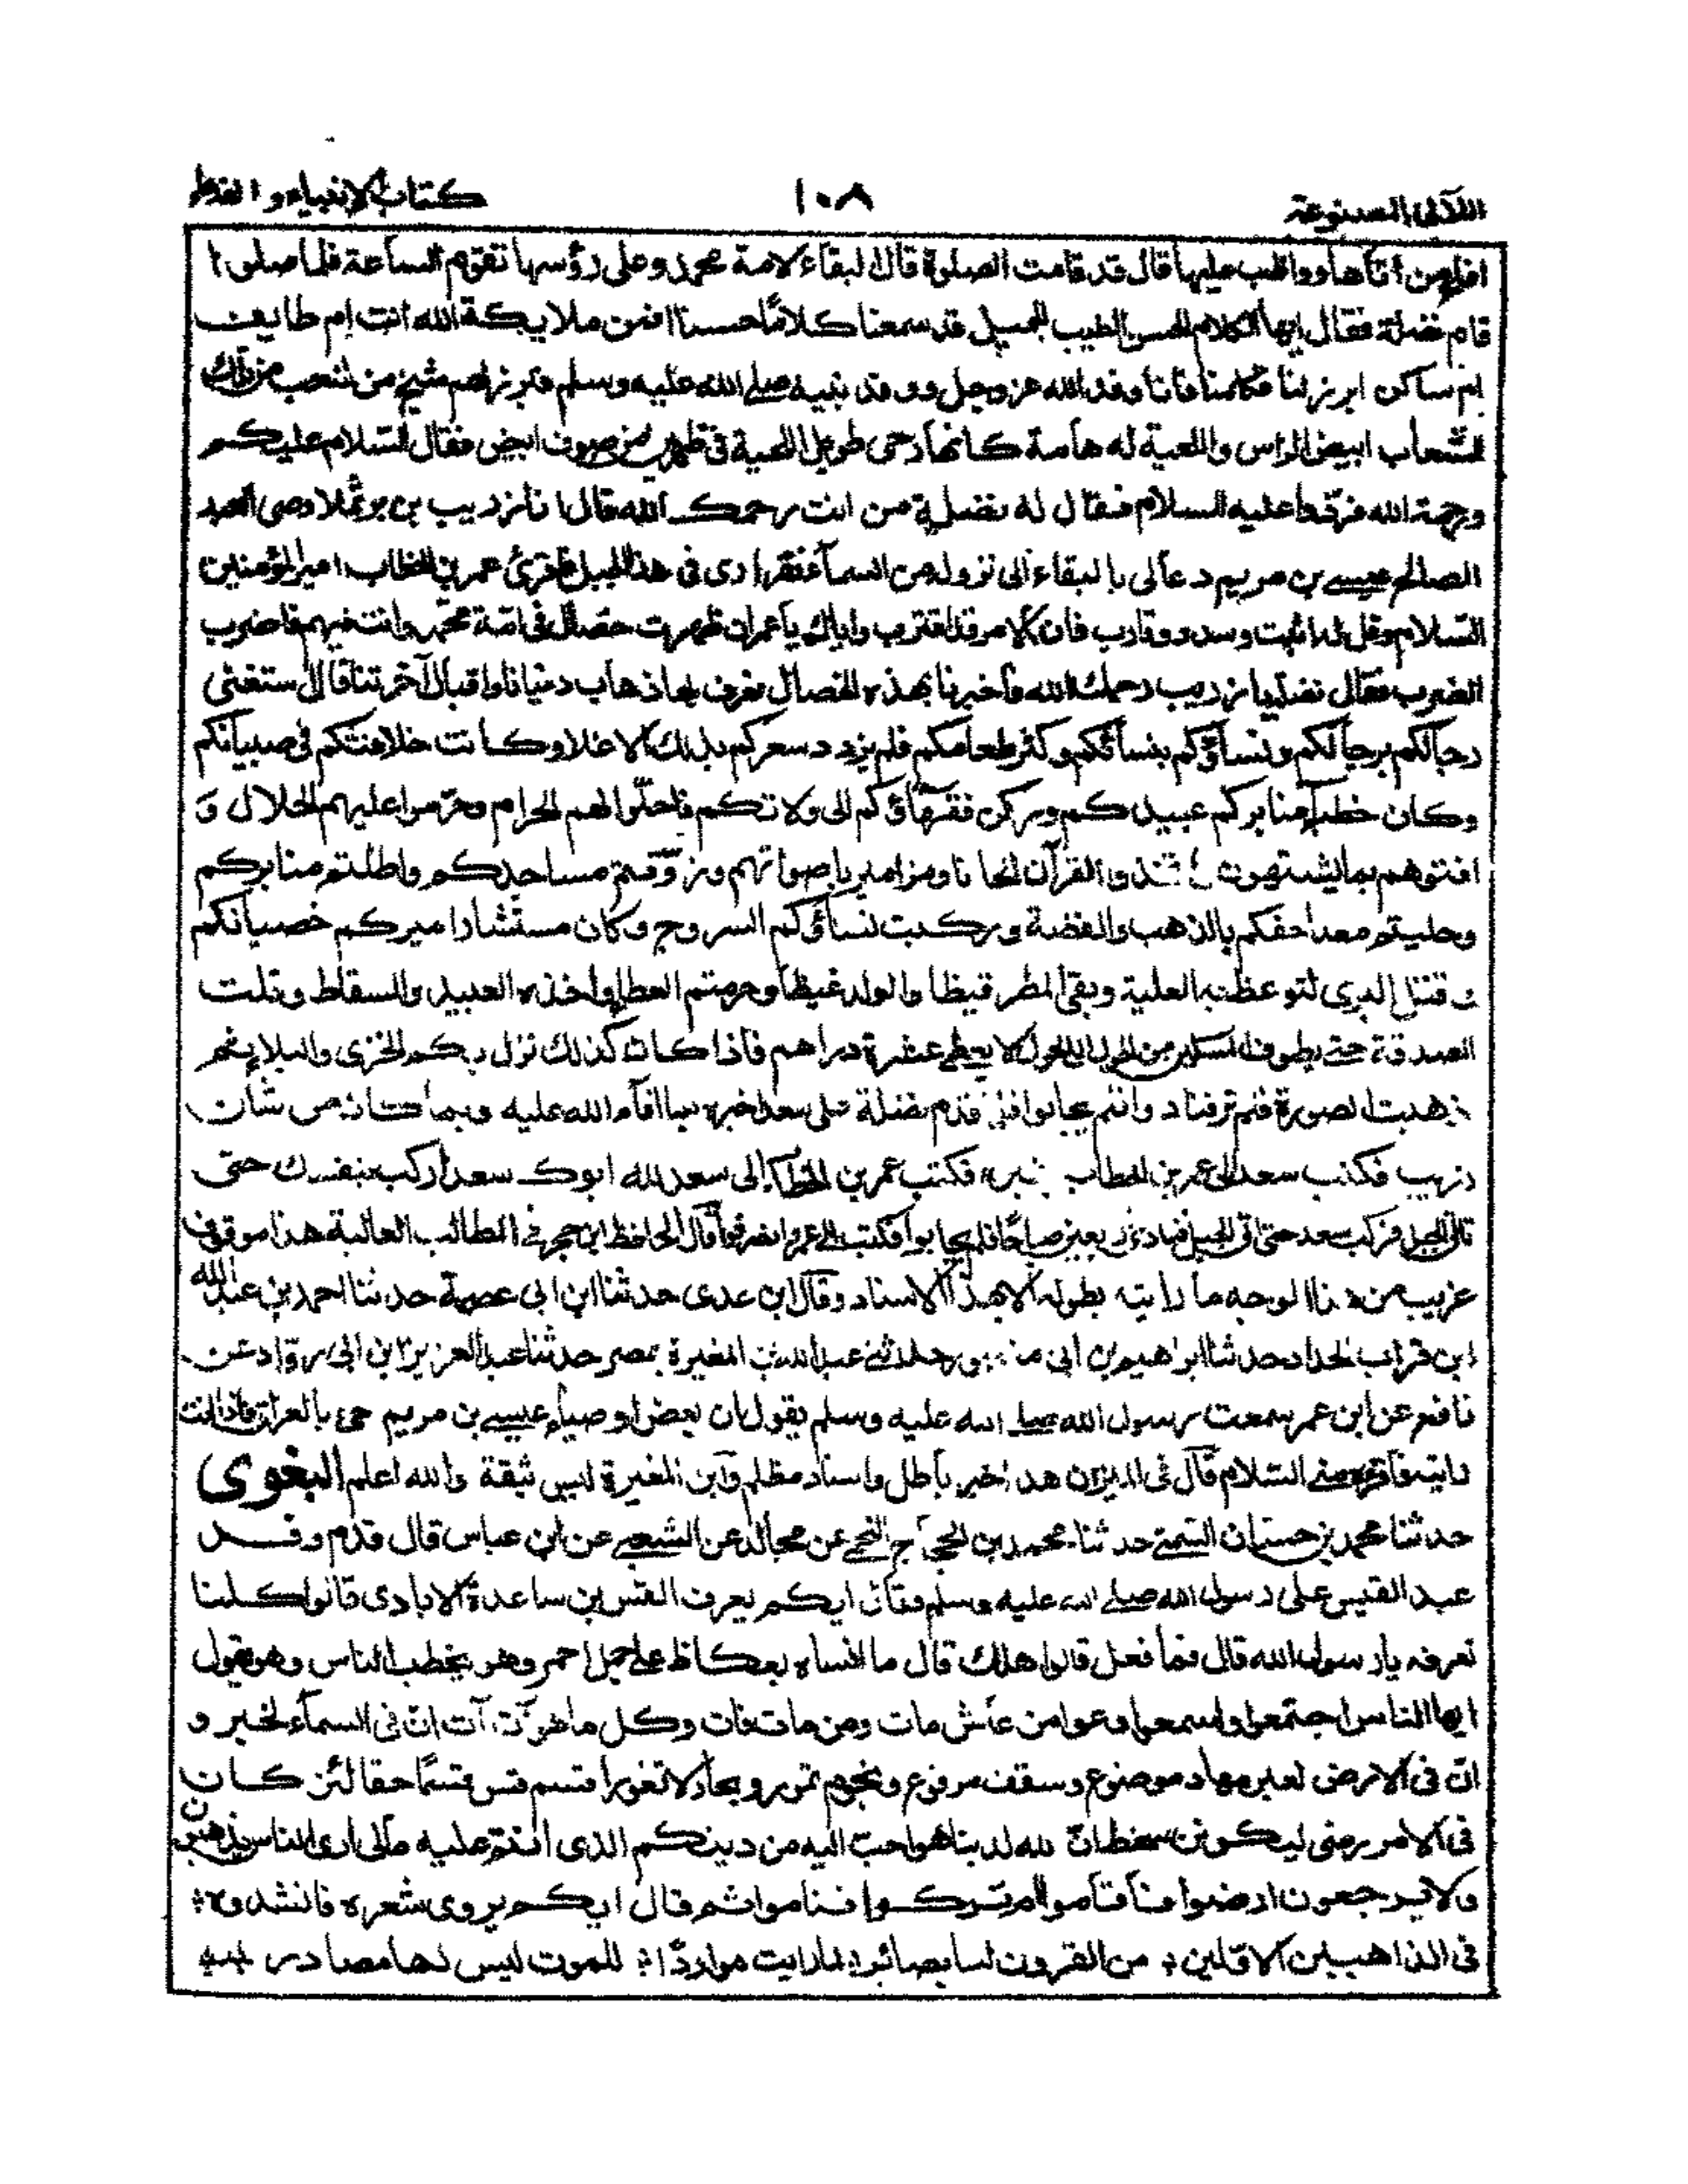 اللآلى المصنوعة
١٠٨
كتاب الانبياء و القدما
افلح من اتاها وواظب عليها قال قد قامت الصلوة قال البقاء لامة محمد وعلى رؤسها تقوم الساعة فلما صلوا
قام نضلة فقال ايها الكلام الحسن الطيب الجميل قد سمعنا كلاما حسنا افمن ملايكة الله انت ام طايف
ام ساكن ابرز لنا فكلمنا فانا وفد الله عز وجل ووفد نبيه صلى الله عليه وسلم فبرز لهم شيخ من شعب من تلك
الشعاب ابيض الراس واللحية له هامة كانها رحى طويل اللحية فى طمرين من صوف ابيض فقال السلام عليكم
ورحمة الله فردوا عليه السلام فقال له نضلة من انت رحمك الله قال انا زريب بن برثملا وصى العبد
الصالح عيسى بن مريم دعا لى بالبقاء الى نزوله من السماء فقرارى فى هذا الجبل فاقرئ عمر بن الخطاب امير المؤمنين
السلام وقل له اثبت وسدد وقارب فان الامر قد اقترب واياك يا عمر ان ظهرت خصال فى امة محمد وانت فيهم فالهرب
الهرب فقال نضلة يا زريب رحمك الله فاخبرنا بهذه الخصال نعرف بها ذهاب دنيانا واقبال آخرتنا قال استغنى
رجالكم برجالكم ونساؤكم بنسائكم وكثر طعامكم فلم يزدد سعركم بذلك الا غلا وكانت خلافتكم فى صبيانكم
وكان خطباء منابركم عبيدكم وركن فقهاؤكم الى ولاتكم فاحلوا لهم الحرام وحرموا عليهم الحلال و
افتوهم بما يشتهون اتخذوا القرآن الحانا ومزامير باصواتهم وزوقتم مساجدكم واطلتم منابركم
وحليتم مصاحفكم بالذهب والفضة وركبت نساؤكم السروج وكان مستشار اميركم خصيانكم
وقتل البرى لتوعظ به العلية وبقى المطر قيظا والولد غيظا وحرمتم العطا واخذه العبيد والسقاط وقلت
الصدقة حتى يطوف المسكين من الحول الى الحول لا يعطى عشرة دراهم فاذا كان كذلك نزل بكم الخزى والبلا ثم
ذهبت الصورة فلم تر فنادوا فلم يجابوا فلما قدم نضلة على سعد اخبره بما افاء الله عليه وبما كان من شان
زريب فكتب سعد الى عمر بن الخطاب يخبره فكتب عمر بن الخطاب الى سعد لله ابوك سعد اركب بنفسك حتى
تاتى الجبل فركب سعد حتى اتى الجبل فنادى اربعين صباحا فلم يجابوا فكتب الى عمر وانصرفوا قال الحافظ ابن حجر فى المطالب العالية هذا موقوف
غريب من هذا الوجه ما رايته بطوله الا بهذا الاسناد وقال ابن عدى حدثنا ابن ابى عصمة حدثنا احمد بن عبد الله
ابن الحداد حدثنا ابراهيم بن ابى حدثنى عبد الله بن المغيرة بمصر حدثنا عبد العزيز بن ابى رواد عن
نافع عن ابن عمر سمعت رسول الله صلى الله عليه وسلم يقول ان بعض اوصياء عيسى بن مريم حى بالعراق فاذا انت
رايته فاقرئه منى السلام قال فى الميزان هذا خبر باطل واسناد مظلم وابن المغيرة ليس بثقة والله اعلم البغوى
حدثنا محمد بن حسان السمتى حدثنا محمد بن الحجاج اللخمى عن مجالد عن الشعبى عن ابن عباس قال قدم وفد
عبد القيس على رسول الله صلى الله عليه وسلم فقال ايكم يعرف القس بن ساعدة الايادى قالوا كلنا
نعرفه يا رسول الله قال فما فعل قالوا هلك قال ما انساه بعكاظ على جمل احمر وهو يخطب الناس وهو يقول
ايها الناس اجتمعوا واسمعوا وعوا من عاش مات ومن مات فات وكل ما هو آت آت ان فى السماء لخبر و
ان فى الارض لعبر مهاد موضوع وسقف مرفوع ونجوم تمور وبحار لا تغور اقسم قس قسما حقا لئن كان
فى الامر رضى ليكونن سخطا ان لله لدينا هو احب اليه من دينكم الذى انتم عليه مالى ارى الناس يذهبون
ولا يرجعون ارضوا فاقاموا ام تركوا فناموا ثم قال ايكم يروى شعره فانشدوه :
فى الذاهبين الاولين : من القرون لنا بصائر : لما رايت مواردا : للموت ليس لها مصادر